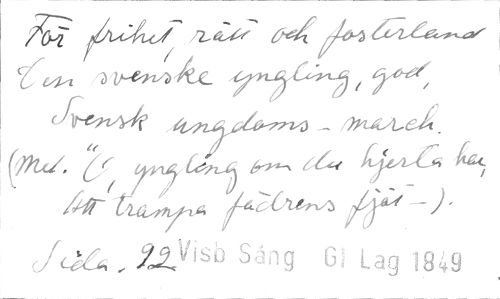 För frihet, rätt och fosterland
Den svenske yngling, god,
Svensk ungdoms-march.
(Mel. "O, yngling om du hjerta har,
Att trampa fädrens fjät -).
Sida. 22 Visb Sång Gl Lag 1849